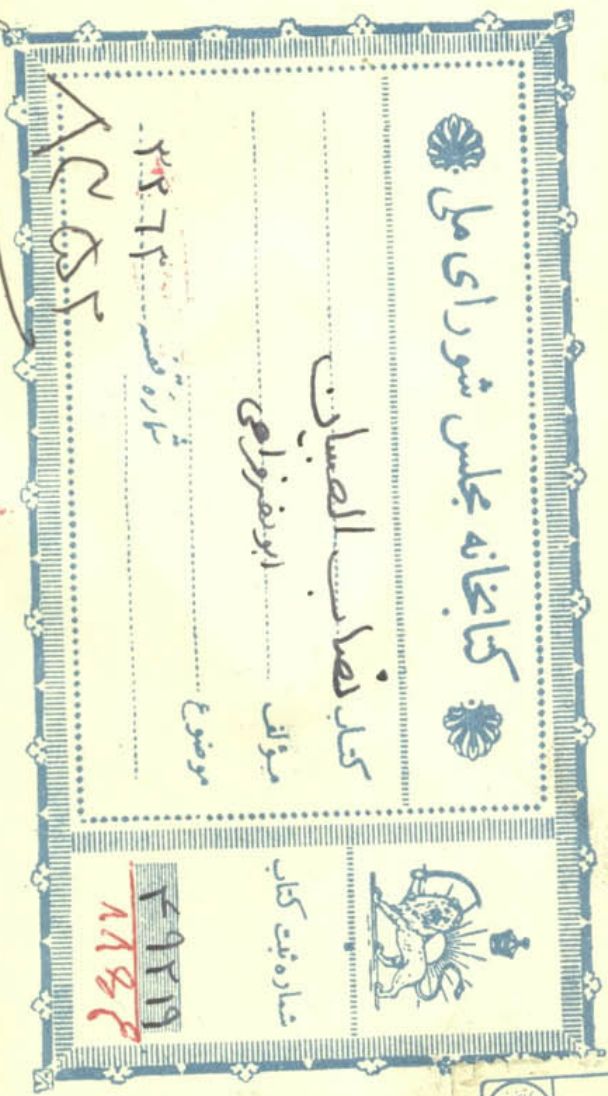 کتابخانه مجلس شورای ملی
کتاب نصاب الصبیان
مؤلف ابونصر فراهی
موضوع
شماره قفسه
شماره ثبت کتاب
۴۹۲۱۹